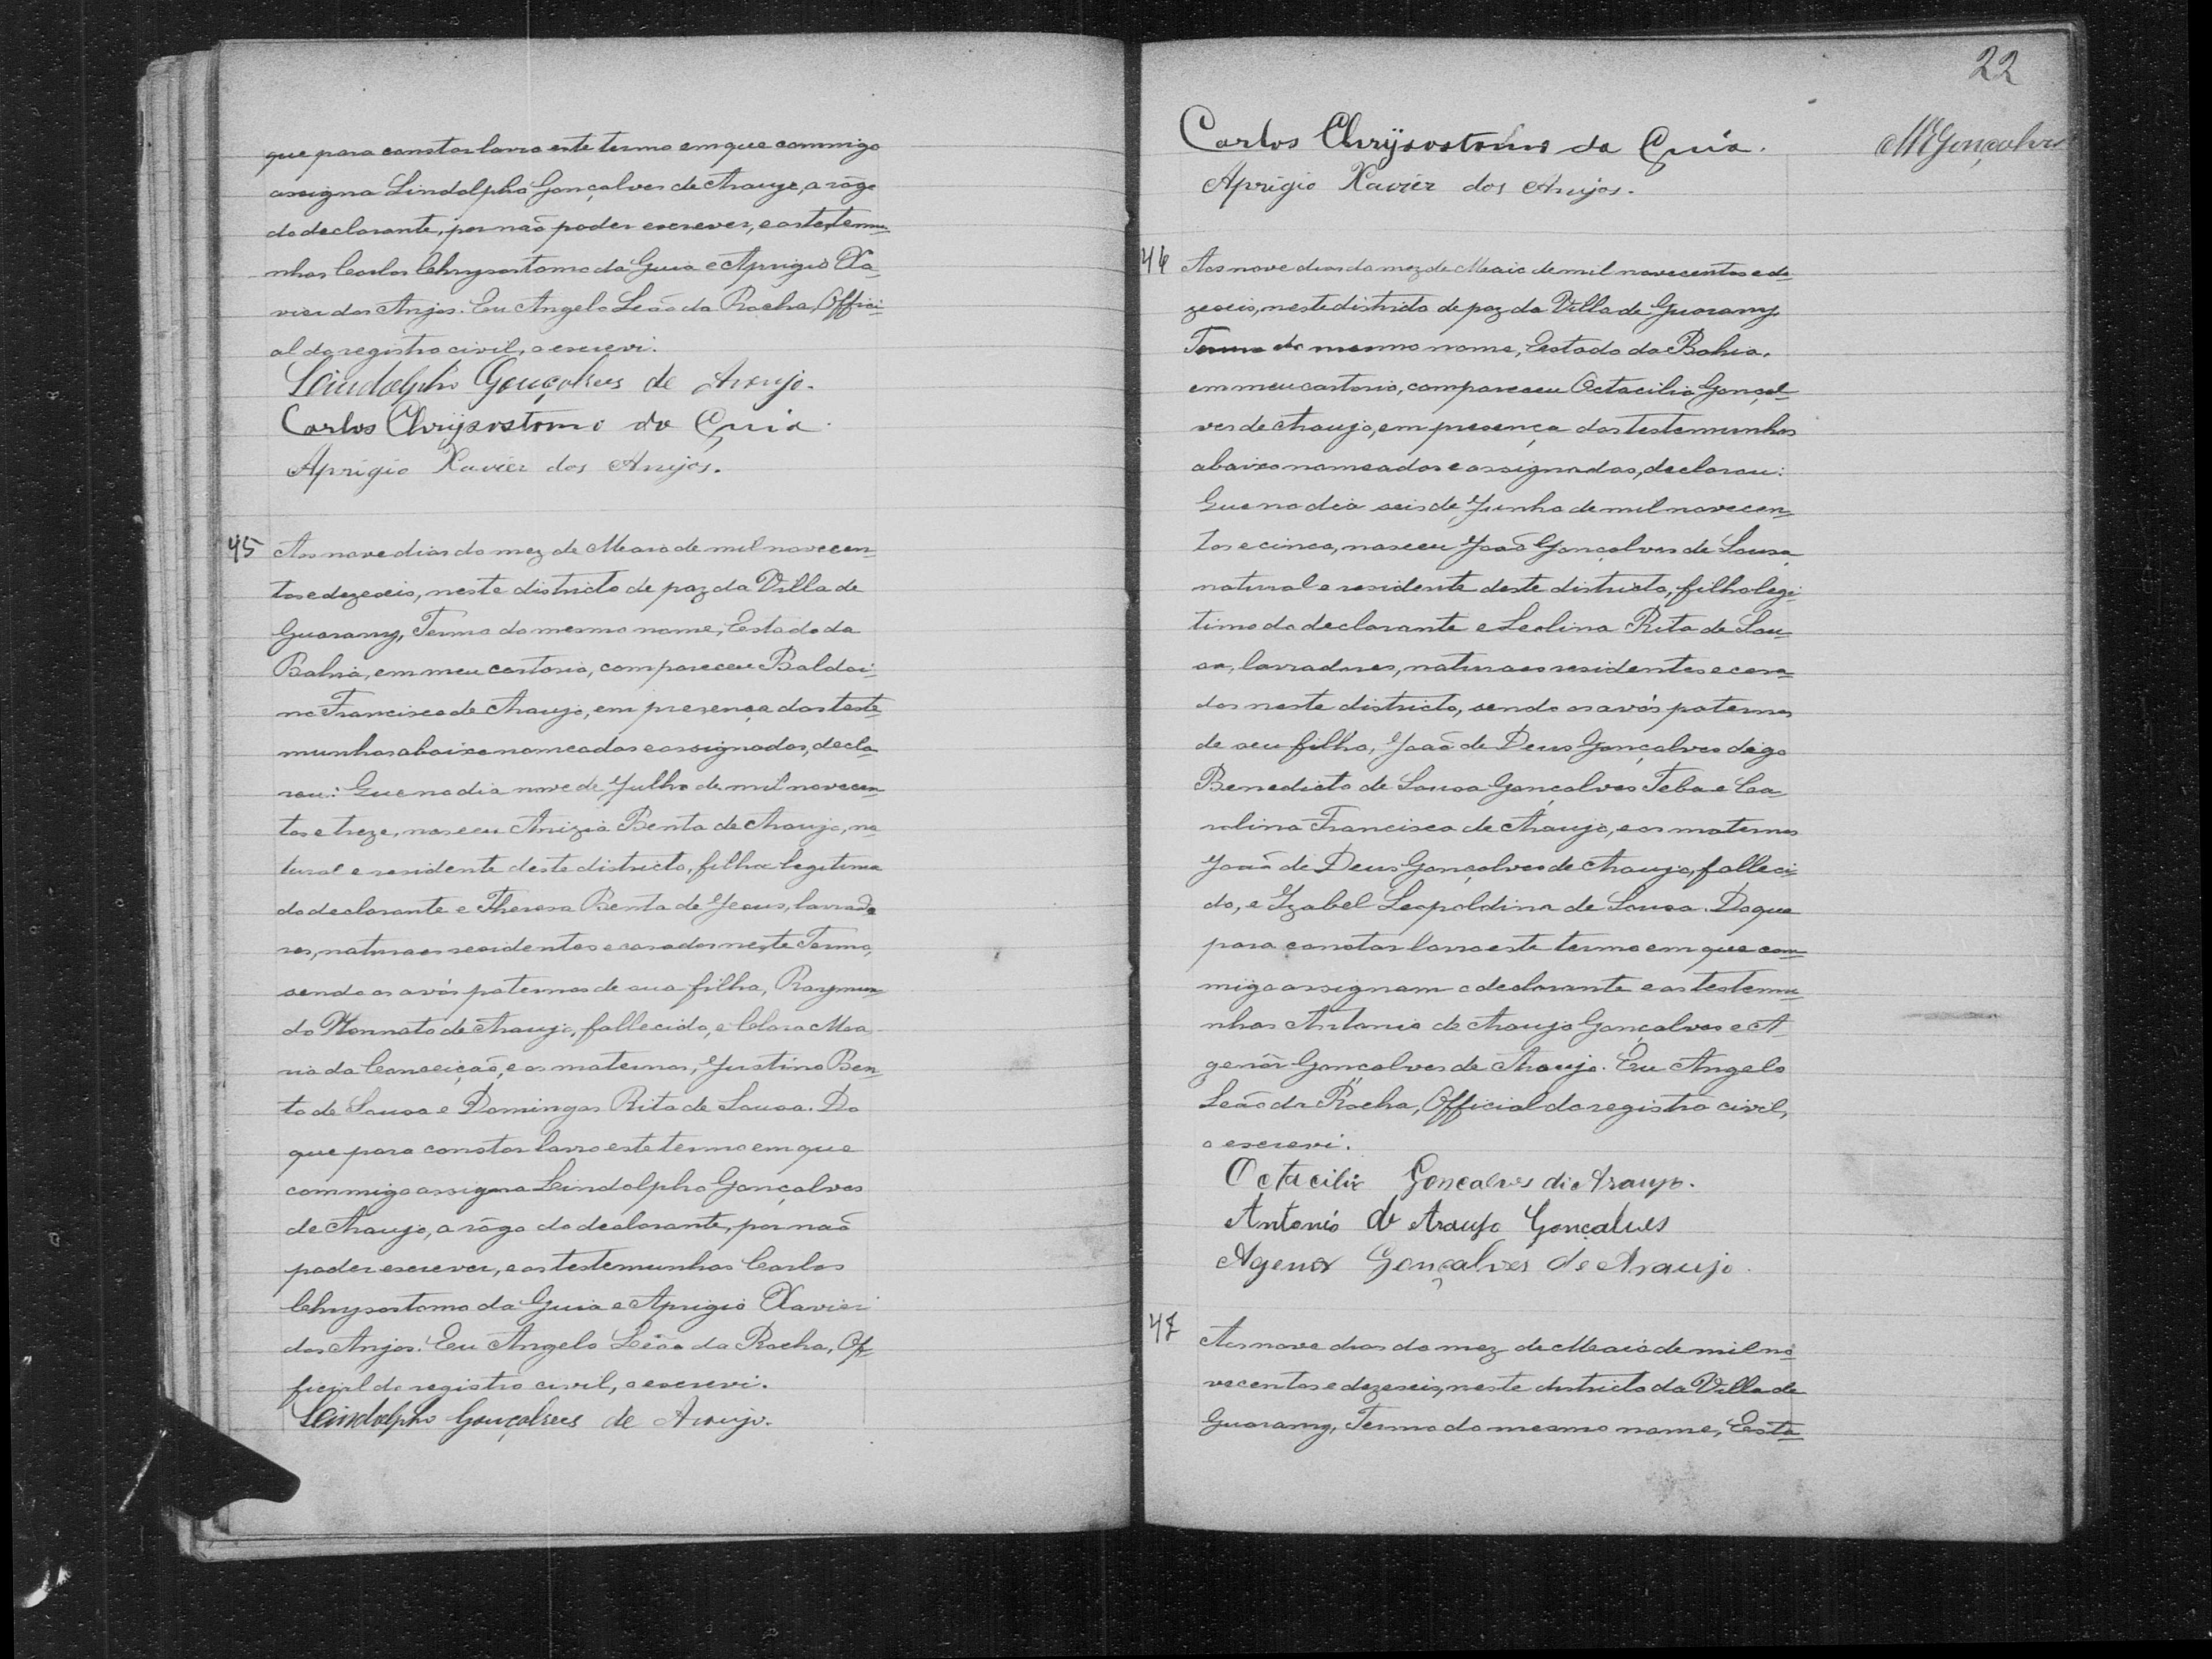 que para constar lavro este termo em que commigo
assigna Lindolpho Gonçalves de Araujo, a rôgo
do declarante, por naõ poder escrever, e as testemu-
nhas Carlos Chrysostomo da Guia e Aprigio Xa-
vier dos Anjos. Eu Angelo Leaõ da Rocha, Offici-
al do registro civil, o escrevi.
Leindolpho Gonçalves de Araujo.
Carlos Chrÿsostomo da Guia.
Aprigio Xavier dos Anjos.
45 Aos nove dias do mez de Maio de mil novecen-
tos e dezeseis, neste districto de paz da Villa de
Guarany, Termo do mesmo nome, Estado da
Bahia, em meu cartorio, compareceu Baldoi-
no Francisco de Araujo, em presença das teste-
munhas abaixo nomeadas e assignadas, decla-
rou: Que no dia nove de Julho de mil novecen-
tos e treze, nasceu Anizia Benta de Araujo, na-
tural e residente deste districto, filha legitima
do declarante e Thereza Benta de Jesus, lavrado-
res, naturaes residentes e casados neste Termo,
sendo os avós paternos de sua filha, Raymun-
do Nonnato de Araujo, fallecido, e Clara Ma-
ria da Conceiçaõ, e os maternos, Justino Ben-
to de Sousa e Domingas Rita de Sousa. Do
que para constar lavro este termo em que
commigo assigna Leindolpho Gonçalves
de Araujo, a rôgo do declarante, por naõ
poder escrever, e as testemunhas Carlos
Chrysostomo da Guia e Aprigio Xavier
dos Anjos. Eu Angelo Leão da Rocha, Of-
ficial do registro civil, o escrevi.
Leindolpho Gonçalves de Araujo.
22
Carlos Chrÿsostomo da Guia.
Aprigio Xavier dos Anjos.
MGonçalves
46 Aos nove dias do mez de Maio de mil novecentos e de-
zeseis, neste districto de paz da Villa de Guarany
Termo do mesmo nome, Estado da Bahia,
em meu cartorio, compareceu Octacilio Gonçal-
ves de Araujo, em presença das testemunhas
abaixo nomeadas e assignadas, declarou:
Que no dia seis de Junho de mil novecen-
tos e cinco, nasceu Joaõ Gonçalves de Sousa
natural e residente deste districto, filho legi-
timo do declarante e Leolina Rita de Sou-
sa, lavradores, naturaes residentes e casa-
dos neste districto, sendo os avós paternos
de seu filho, Joaõ de Deus Gonçalves digo
Benedicto de Sousa Gonçalves Teba e Ca-
rolina Francisca de Araujo, e os maternos
Joaõ de Deus Gonçalves de Araujo, falleci-
do, e Izabel Leopoldina de Sousa. Do que
para constar lavro este termo em que com-
migo assignam o declarante e as testemu-
nhas Antonio de Araujo Gonçalves e A-
genôr Gonçalves de Araujo. Eu Angelo
Leaõ da Rocha, Official do registro civil,
o escrevi.
Octacilio Gonçalves de Araujo.
Antonio de Araujo Gonçalves
Agenor Gonçalves de Araujo.
47 Aos nove dias do mez de Maio de mil no-
vecentos e dezeseis, neste districto da Villa de
Guarany, Termo do mesmo nome, Esta-